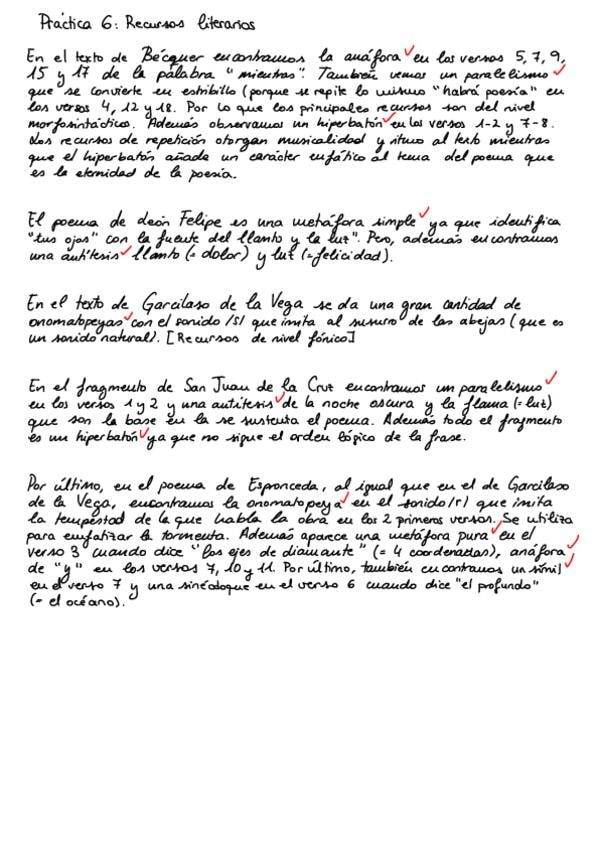 Práctica 6: Recursos literarios
En el texto de Bécquer encontramos la anáfora en los versos 5, 7, 9,
15 y 17 de la palabra "mientras". También vemos un paralelismo
que se convierte en estribillo (porque se repite lo mismo "habrá poesía" en
los versos 4, 12 y 18. Por lo que los principales recursos son del nivel
morfosintáctico. Además observamos un hiperbatón en los versos 1-2 y 7-8.
Los recursos de repetición otorgan musicalidad y ritmo al texto mientras
que el hiperbatón añade un carácter enfático al tema del poema que
es la eternidad de la poesía.
El poema de León Felipe es una metáfora simple ya que identifica
"tus ojos" con la fuente del llanto y la luz". Pero, además encontramos
una antítesis llanto (= dolor) y luz (= felicidad).
En el texto de Garcilaso de la Vega se da una gran cantidad de
onomatopeyas con el sonido /s/ que imita al susurro de las abejas (que es
un sonido natural). [Recursos de nivel fónico]
En el fragmento de San Juan de la Cruz encontramos un paralelismo
en los versos 1 y 2 y una antítesis de la noche oscura y la flama (= luz)
que son la base en la se sustenta el poema. Además todo el fragmento
es un hiperbatón ya que no sigue el orden lógico de la frase.
Por último, en el poema de Espronceda, al igual que en el de Garcilaso
de la Vega, encontramos la onomatopeya en el sonido /r/ que imita
la tempestad de la que habla la obra en los 2 primeros versos. Se utiliza
para enfatizar la tormenta. Además aparece una metáfora pura en el
verso 3 cuando dice "los ejes de diamante" (= 4 coordenadas), anáfora
de "y" en los versos 7, 10 y 11. Por último, también encontramos un símil
en el verso 7 y una sinécdoque en el verso 6 cuando dice "el profundo"
(= el océano).